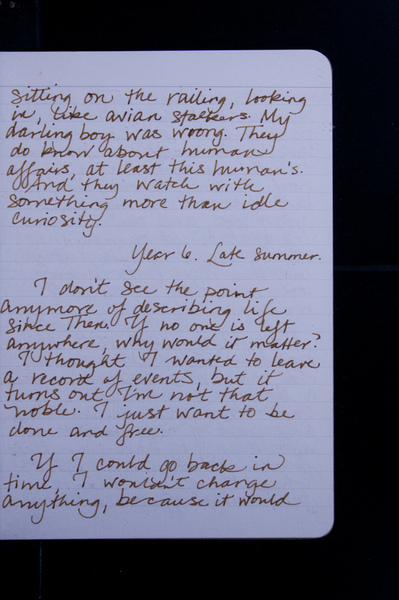 sitting on the railing, looking
in, like avian stalkers. My
darling boy was wrong. They
do know about human
affairs, at least this human's.
And they watch with
something more than idle
curiosity.
Year 6. Late summer.
I don't see the point
anymore of describing life
since Then. If no one is left
anywhere, why would it matter?
I thought I wanted to leave
a record of events, but it
turns out I'm not that
noble. I just want to be
done and free.
If I could go back in
time, I wouldn't change
anything, because it would